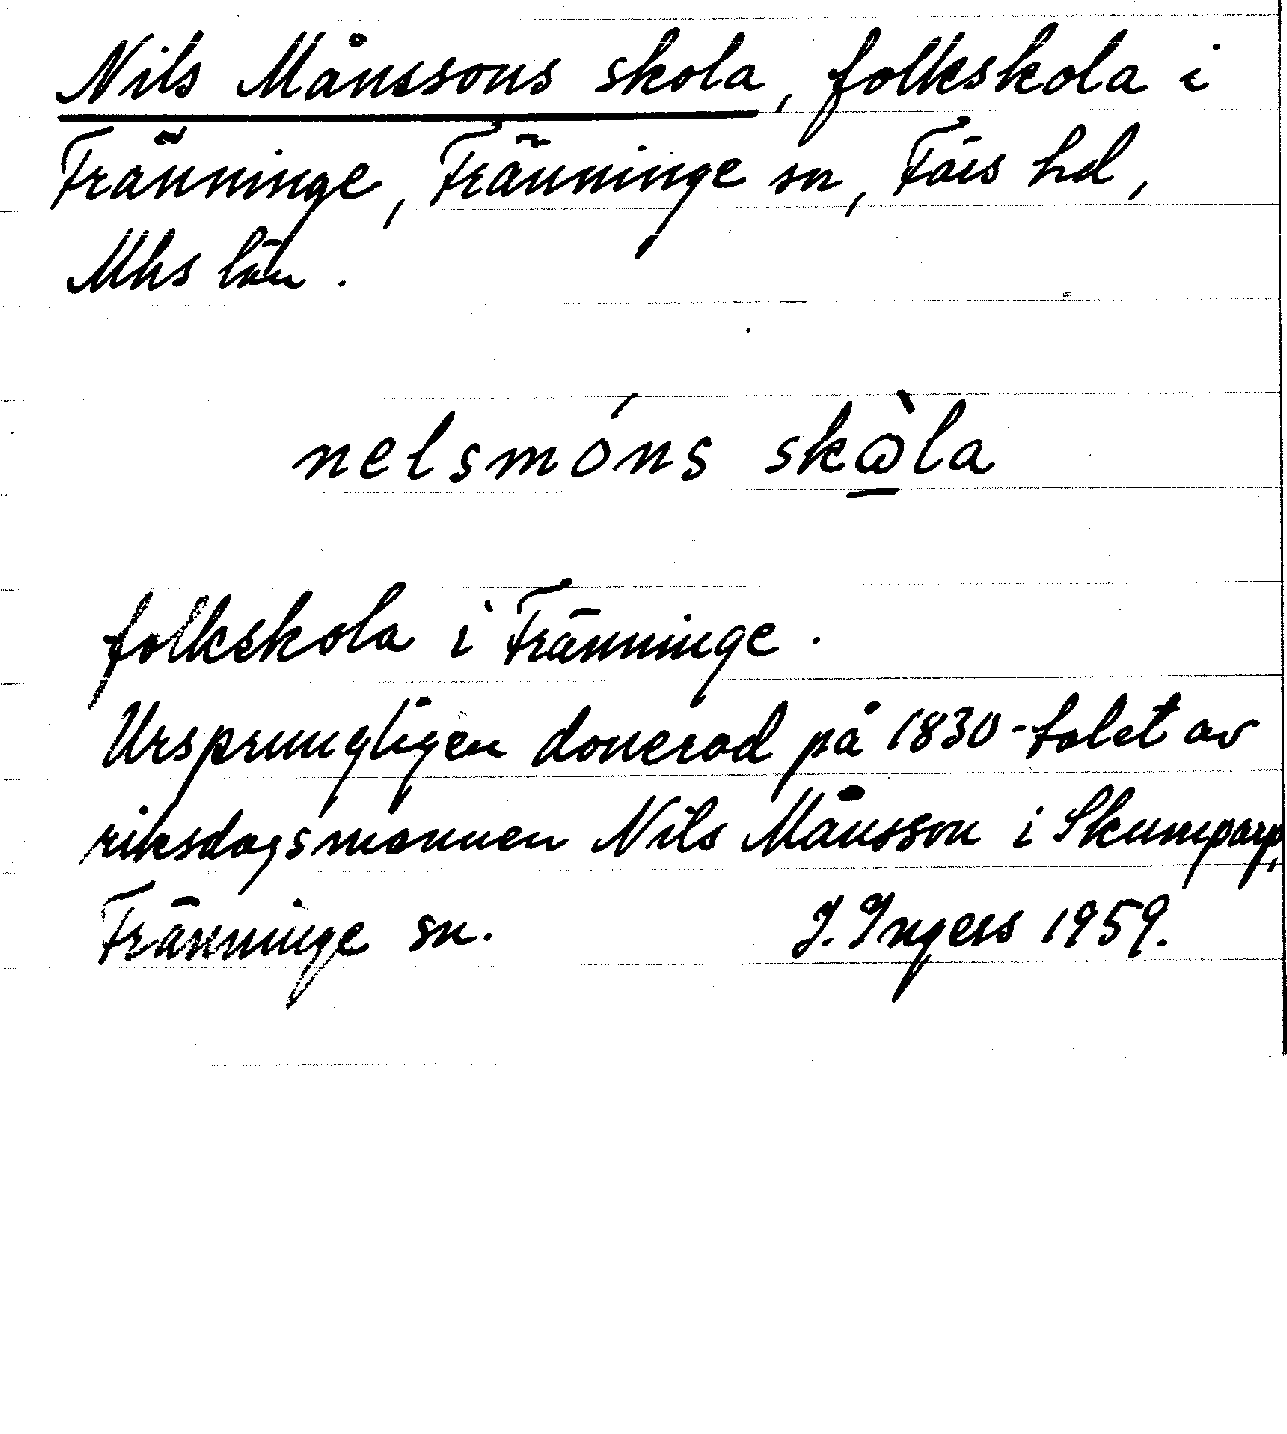 Nils Månssons skola, folkskola i
Tränninge, Tränninge sn, Färs hd,
Mhs län.
nelsmóns skɷ̱̀la
folkskola i Tränninge.
Ursprungligen donerad på 1830-talet av
riksdagsmannen Nils Månsson i Skumparp,
Tränninge sn. J. Ingers 1959.